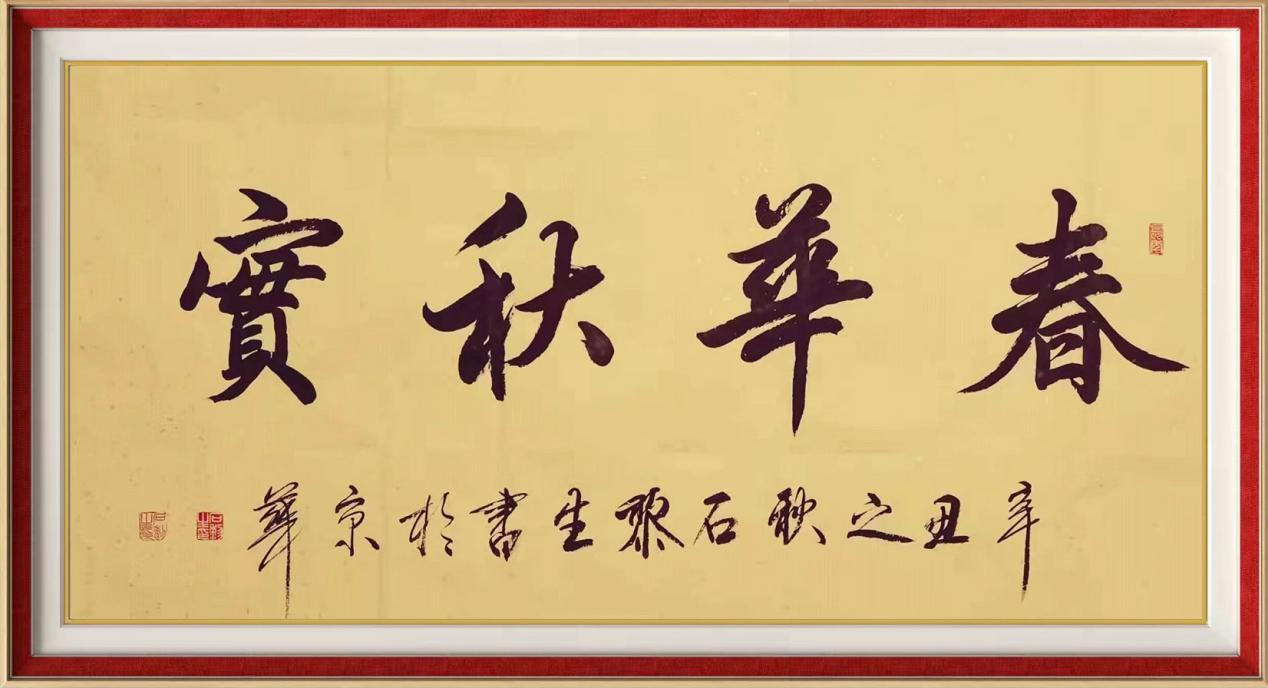 春華秋實
辛丑之秋石黎生書於京華